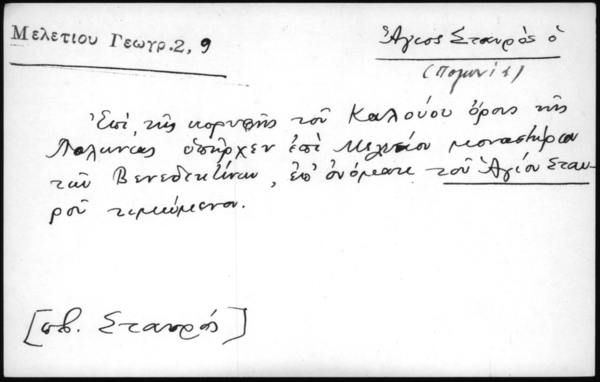 Μελετίου Γεωγρ. 2, 9
Ἅγιος Σταυρός ὁ
(Πολωνία)
Ἐπὶ τῆς κορυφῆς τοῦ Καλούου ὄρους τῆς
Πολωνίας ὑπῆρχεν ἐπὶ Μελετίου μοναστήριον
τῶν Βενεδικτίνων, ἐπ' ὀνόματι τοῦ Ἁγίου Σταυ-
ροῦ τιμώμενον.
[πβ. Σταυρός]